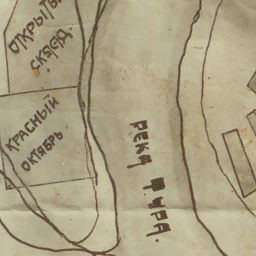 ОТКРЫТЫ
СКЛАД.
КРАСНЫЙ
ОКТЯБРЬ
река